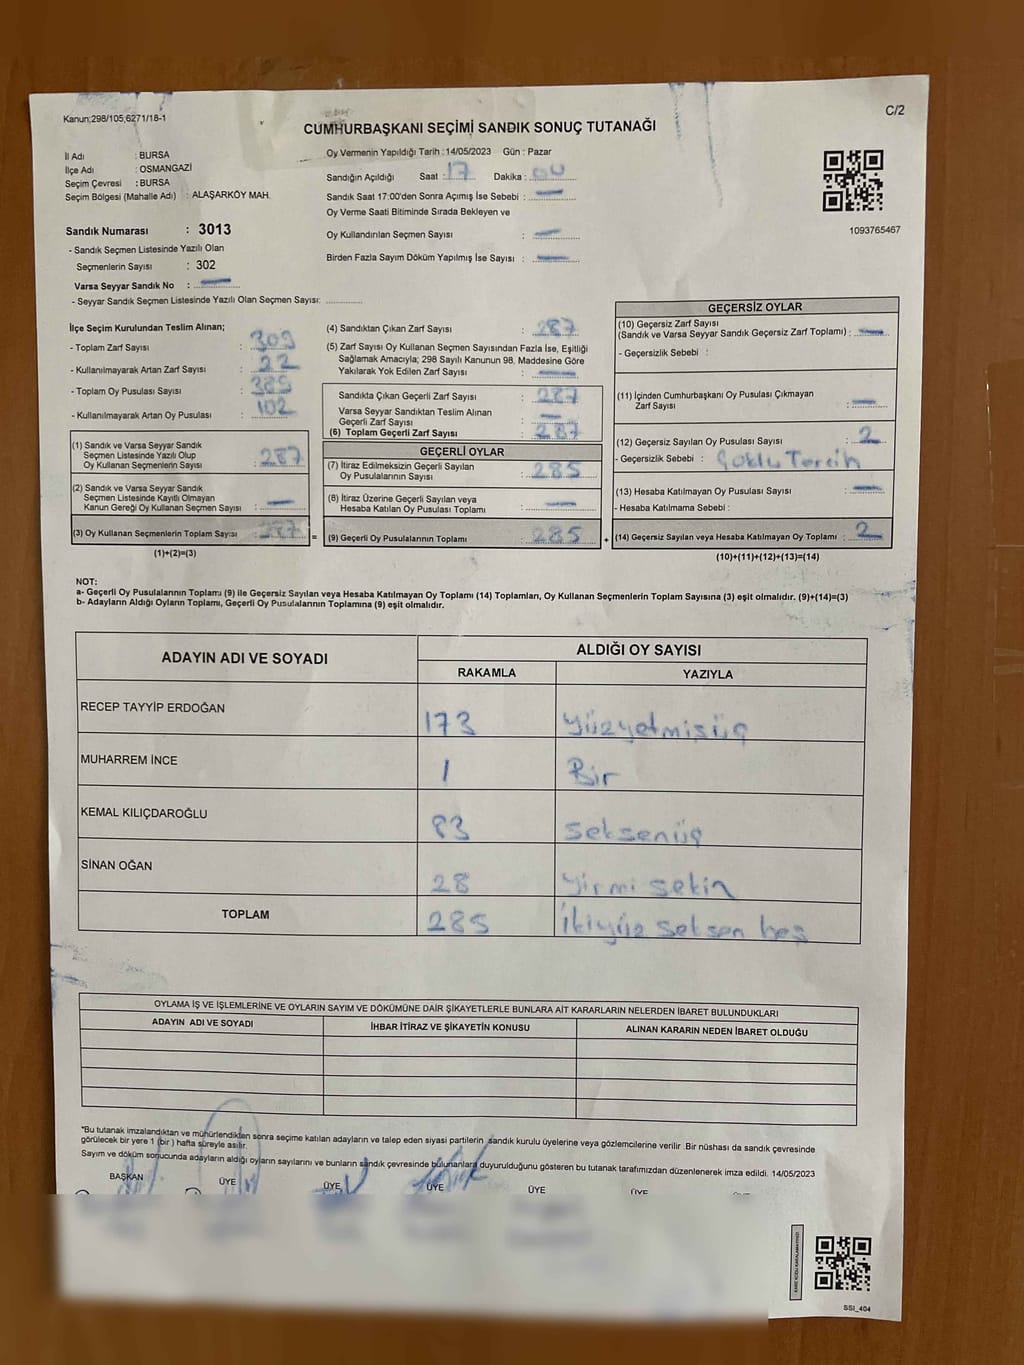 Kanun;298/105;6271/18-1
C/2
CUMHURBAŞKANI SEÇİMİ SANDIK SONUÇ TUTANAĞI
İl Adı : BURSA
İlçe Adı : OSMANGAZİ
Seçim Çevresi : BURSA
Seçim Bölgesi (Mahalle Adı) : ALAŞARKÖY MAH.
Sandık Numarası : 3013
- Sandık Seçmen Listesinde Yazılı Olan
Seçmenlerin Sayısı : 302
Varsa Seyyar Sandık No :
- Seyyar Sandık Seçmen Listesinde Yazılı Olan Seçmen Sayısı:
Oy Vermenin Yapıldığı Tarih : 14/05/2023 Gün : Pazar
Sandığın Açıldığı Saat : 17 Dakika : 00
Sandık Saat 17:00'den Sonra Açımış İse Sebebi : —
Oy Verme Saati Bitiminde Sırada Bekleyen ve
Oy Kullandırılan Seçmen Sayısı : —
Birden Fazla Sayım Döküm Yapılmış İse Sayısı : —
1093765467
İlçe Seçim Kurulundan Teslim Alınan;
- Toplam Zarf Sayısı :
- Kullanılmayarak Artan Zarf Sayısı : 22
- Toplam Oy Pusulası Sayısı :
- Kullanılmayarak Artan Oy Pusulası : 102
(1) Sandık ve Varsa Seyyar Sandık
Seçmen Listesinde Yazılı Olup
Oy Kullanan Seçmenlerin Sayısı : 287
(2) Sandık ve Varsa Seyyar Sandık
Seçmen Listesinde Kayıtlı Olmayan
Kanun Gereği Oy Kullanan Seçmen Sayısı : —
(3) Oy Kullanan Seçmenlerin Toplam Sayısı : 287
(1)+(2)=(3)
(4) Sandıktan Çıkan Zarf Sayısı : 287
(5) Zarf Sayısı Oy Kullanan Seçmen Sayısından Fazla İse, Eşitliği
Sağlamak Amacıyla; 298 Sayılı Kanunun 98. Maddesine Göre
Yakılarak Yok Edilen Zarf Sayısı : —
Sandıkta Çıkan Geçerli Zarf Sayısı : 287
Varsa Seyyar Sandıktan Teslim Alınan
Geçerli Zarf Sayısı : —
(6) Toplam Geçerli Zarf Sayısı : 287
GEÇERLİ OYLAR
(7) İtiraz Edilmeksizin Geçerli Sayılan
Oy Pusulalarının Sayısı : 285
(8) İtiraz Üzerine Geçerli Sayılan veya
Hesaba Katılan Oy Pusulası Toplamı : —
= (9) Geçerli Oy Pusulalarının Toplamı : 285
GEÇERSİZ OYLAR
(10) Geçersiz Zarf Sayısı
(Sandık ve Varsa Seyyar Sandık Geçersiz Zarf Toplamı) : —
- Geçersizlik Sebebi :
(11) İçinden Cumhurbaşkanı Oy Pusulası Çıkmayan
Zarf Sayısı : —
(12) Geçersiz Sayılan Oy Pusulası Sayısı : 2
- Geçersizlik Sebebi : Çoklu Tercih
(13) Hesaba Katılmayan Oy Pusulası Sayısı : —
- Hesaba Katılmama Sebebi :
+ (14) Geçersiz Sayılan veya Hesaba Katılmayan Oy Toplamı : 2
(10)+(11)+(12)+(13)=(14)
NOT:
a- Geçerli Oy Pusulalarının Toplamı (9) ile Geçersiz Sayılan veya Hesaba Katılmayan Oy Toplamı (14) Toplamları, Oy Kullanan Seçmenlerin Toplam Sayısına (3) eşit olmalıdır. (9)+(14)=(3)
b- Adayların Aldığı Oyların Toplamı, Geçerli Oy Pusulalarının Toplamına (9) eşit olmalıdır.
ADAYIN ADI VE SOYADI ALDIĞI OY SAYISI
RAKAMLA YAZIYLA
RECEP TAYYİP ERDOĞAN 173 Yüzyetmişüç
MUHARREM İNCE 1 Bir
KEMAL KILIÇDAROĞLU 83 Seksenüç
SİNAN OĞAN 28 Yirmi sekiz
TOPLAM 285 İkiyüz seksen beş
OYLAMA İŞ VE İŞLEMLERİNE VE OYLARIN SAYIM VE DÖKÜMÜNE DAİR ŞİKAYETLERLE BUNLARA AİT KARARLARIN NELERDEN İBARET BULUNDUKLARI
ADAYIN ADI VE SOYADI İHBAR İTİRAZ VE ŞİKAYETİN KONUSU ALINAN KARARIN NEDEN İBARET OLDUĞU
*Bu tutanak imzalandıktan ve mühürlendikten sonra seçime katılan adayların ve talep eden siyasi partilerin sandık kurulu üyelerine veya gözlemcilerine verilir .Bir nüshası da sandık çevresinde
görülecek bir yere 1 (bir ) hafta süreyle asılır.
Sayım ve döküm sonucunda adayların aldığı oyların sayılarını ve bunların sandık çevresinde bulunanlara duyurulduğunu gösteren bu tutanak tarafımızdan düzenlenerek imza edildi. 14/05/2023
BAŞKAN ÜYE ÜYE ÜYE ÜYE ÜYE
SSI_404